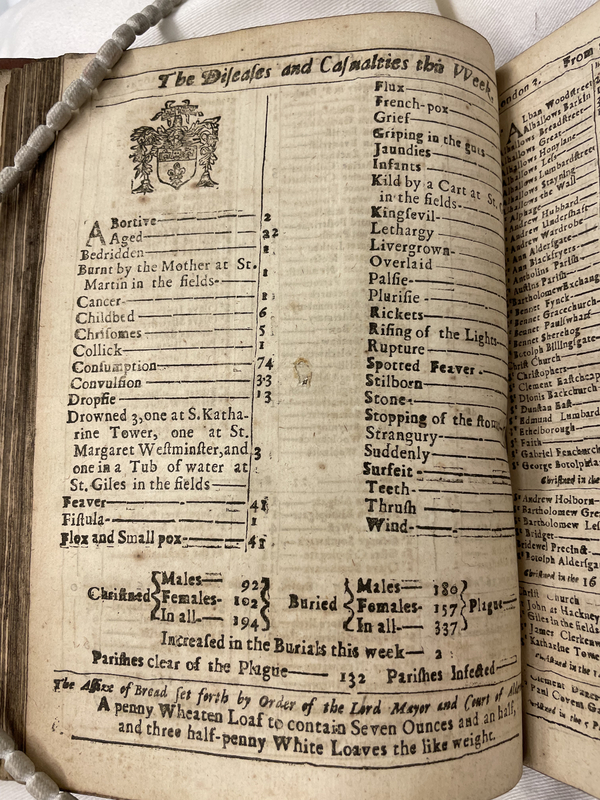 The Diseases and Casualties this Week.
ABortive — 2
Aged — 22
Bedridden —
Burnt by the Mother at St.
Martin in the fields — 1
Cancer —
Childbed — 6
Chrisomes — 5
Collick — 1
Consumption — 74
Convulsion — 33
Dropsie — 13
Drowned 3, one at S. Katha-
rine Tower, one at St.
Margaret Westminster, and 3
one in a Tub of water at
St. Giles in the fields —
Feaver — 41
Fistula — 1
Flox and Small pox — 41
Flux
French-pox
Grief
Griping in the guts
Jaundies
Infants
Kild by a Cart at St.
in the fields
Kingsevil
Lethargy
Livergrown
Overlaid
Palsie
Plurisie
Rickets
Rising of the Lights
Rupture
Spotted Feaver
Stilborn
Stone
Stopping of the
Strangury
Suddenly
Surfeit
Teeth
Thrush
Wind
Christned { Males — 92
Females — 102
In all — 194 }
Buried { Males — 180
Females — 157
In all — 337 } Plague —
Increased in the Burials this week — 2
Parishes clear of the Plague — 132 Parishes Infected —
The Assize of Bread set forth by Order of the Lord Mayor and Court of
A penny Wheaten Loaf to contain Seven Ounces and an half,
and three half-penny White Loaves the like weight.
From
ALban Woodstreet
Alhallows Barkin
Alhallows Breadstreet
Great
Honylane
Less
Lumbardstreet
Stayning
the Wall
Alphage
Andrew Hubbard
Andrew Undershaft
Andrew Wardrobe
Ann Aldersgate
Ann Blackfryers
Antholins Parish
Austins Parish
Bartholomew Exchang
Bennet Fynck
Bennet Gracechurch
Bennet Paulswharf
Bennet Sherehog
Botolph Billingsgate
Christ Church
Christophers
Clement Eastcheap
Dionis Backchurch
Dunstan East
Edmund Lumbard
Ethelborough
Faith
Gabriel Fenchurch
George Botolphs
Christned in the
Andrew Holborn
Bartholomew Gre
Bartholomew Les
Bridget
Bridewel Precinct
Botolph Aldersga
Christned in the 16
Christ Church
John at Hackney
Giles in the fields
James Clerkenw
Katharine Tower
Clement Danes
Paul Covent Ga